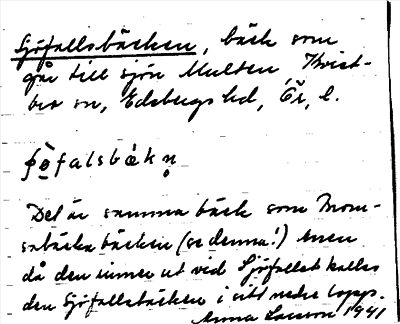 Sjöfallsbäcken, bäck som
går till sjön Multen Kvist-
bro sn, Edsbergs hd, Ör. l.
ʃø̀falsbækn̥
Det är samma bäck som Mom-
sabäcka bäcken (se denna!) men
då den rinner ut vid Sjöfallet kallas
den Sjöfallsbäcken i sitt nedre lopp.
Anna Larsson 1941